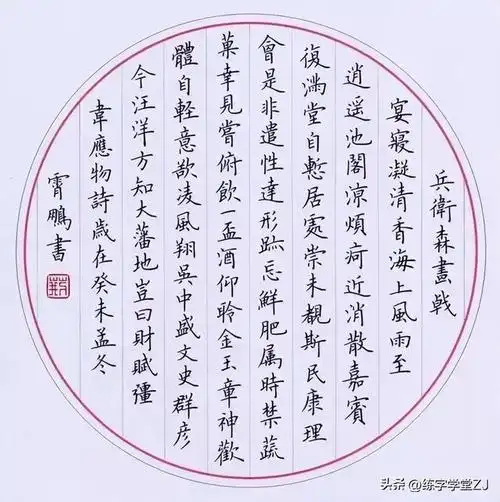 兵衛森畫戟
宴寢凝清香海上風雨至
逍遥池閣涼煩疴近消散嘉賓
復滿堂自慙居處崇未覩斯民康理
會是非遣性達形跡忘鮮肥属時禁蔬
菓幸見嘗俯飲一盃酒仰聆金玉章神歡
體自輕意欲凌風翔吳中盛文史群彦
今汪洋方知大藩地豈曰財賦彊
韋應物詩歲在癸未孟冬
霄鵬書
头条 @练字学堂ZJ